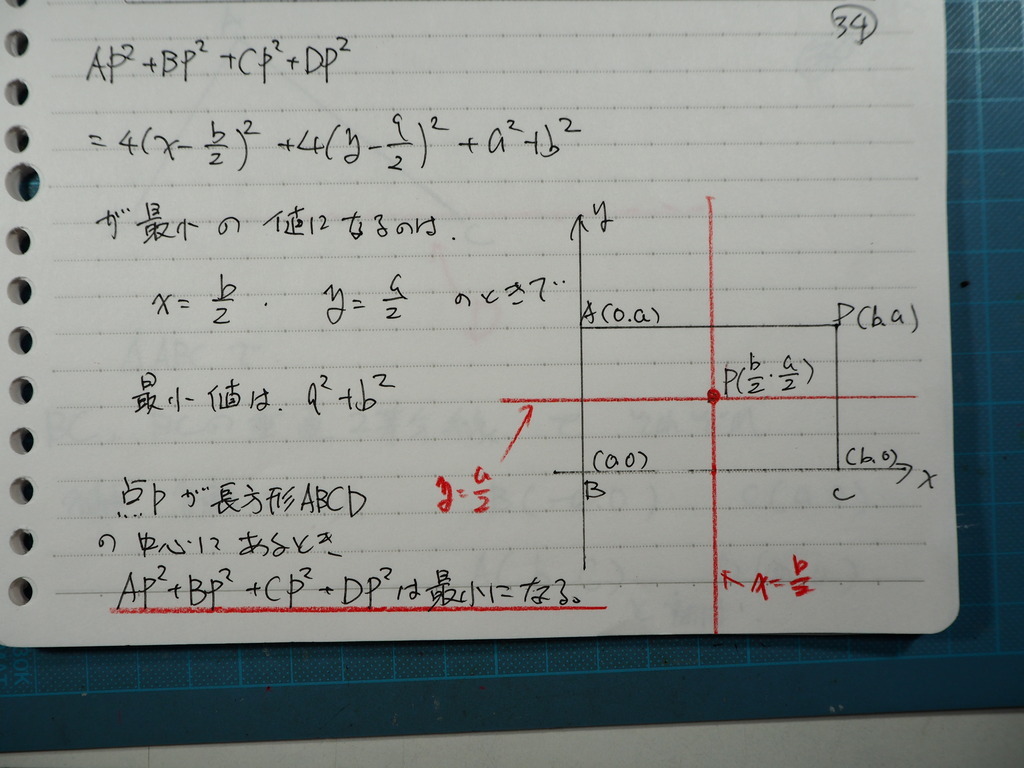 34
AP²+BP²+CP²+DP²
=4(x-b/2)²+4(y-a/2)²+a²+b²
が最小の値になるのは.
x=b/2. y=a/2 のときで‥
最小値は. a²+b²
点Pが長方形ABCD
の中心にあるとき
AP²+BP²+CP²+DP²は最小になる。
y
A(0.a)
D(b.a)
P(b/2.a/2)
(0.0)
B
(b.0)
C
x
y=a/2
x=b/2